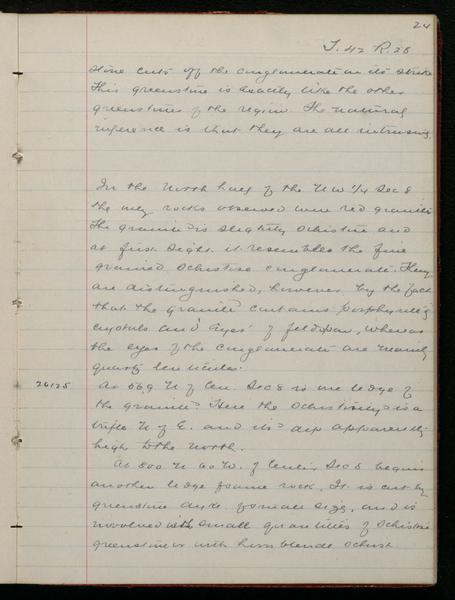 24
T. 42 R. 28
stone cuts off the conglomerate on its strike
This greenstone is exactly like the other
greenstones of the region. The natural
inference is that they are all intrusive.
In the North half of the NW 1/4 Sec 8
the only rocks observed were red granite
The granite is slightly schistose and
at first sight it resembles the fine
grained schistose conglomerate. They
are distinguished, however by the fact
that the granite contains porphyritic
crystals and "eyes" of feldspar, whereas
the eyes of the conglomerate are mainly
quartz lenticules.
26125 At N of Cen. Sec 8 is one ledge of
the granite. Here the schistosity is a
trifle N of E. and its dip apparently
high to the North.
At 800 N 60 W. of Center Sec 8 begins
another ledge same rock. It is cut by
greenstone dyke small size, and is
involved with small quantities of schistose
greenstone or with hornblende schist.